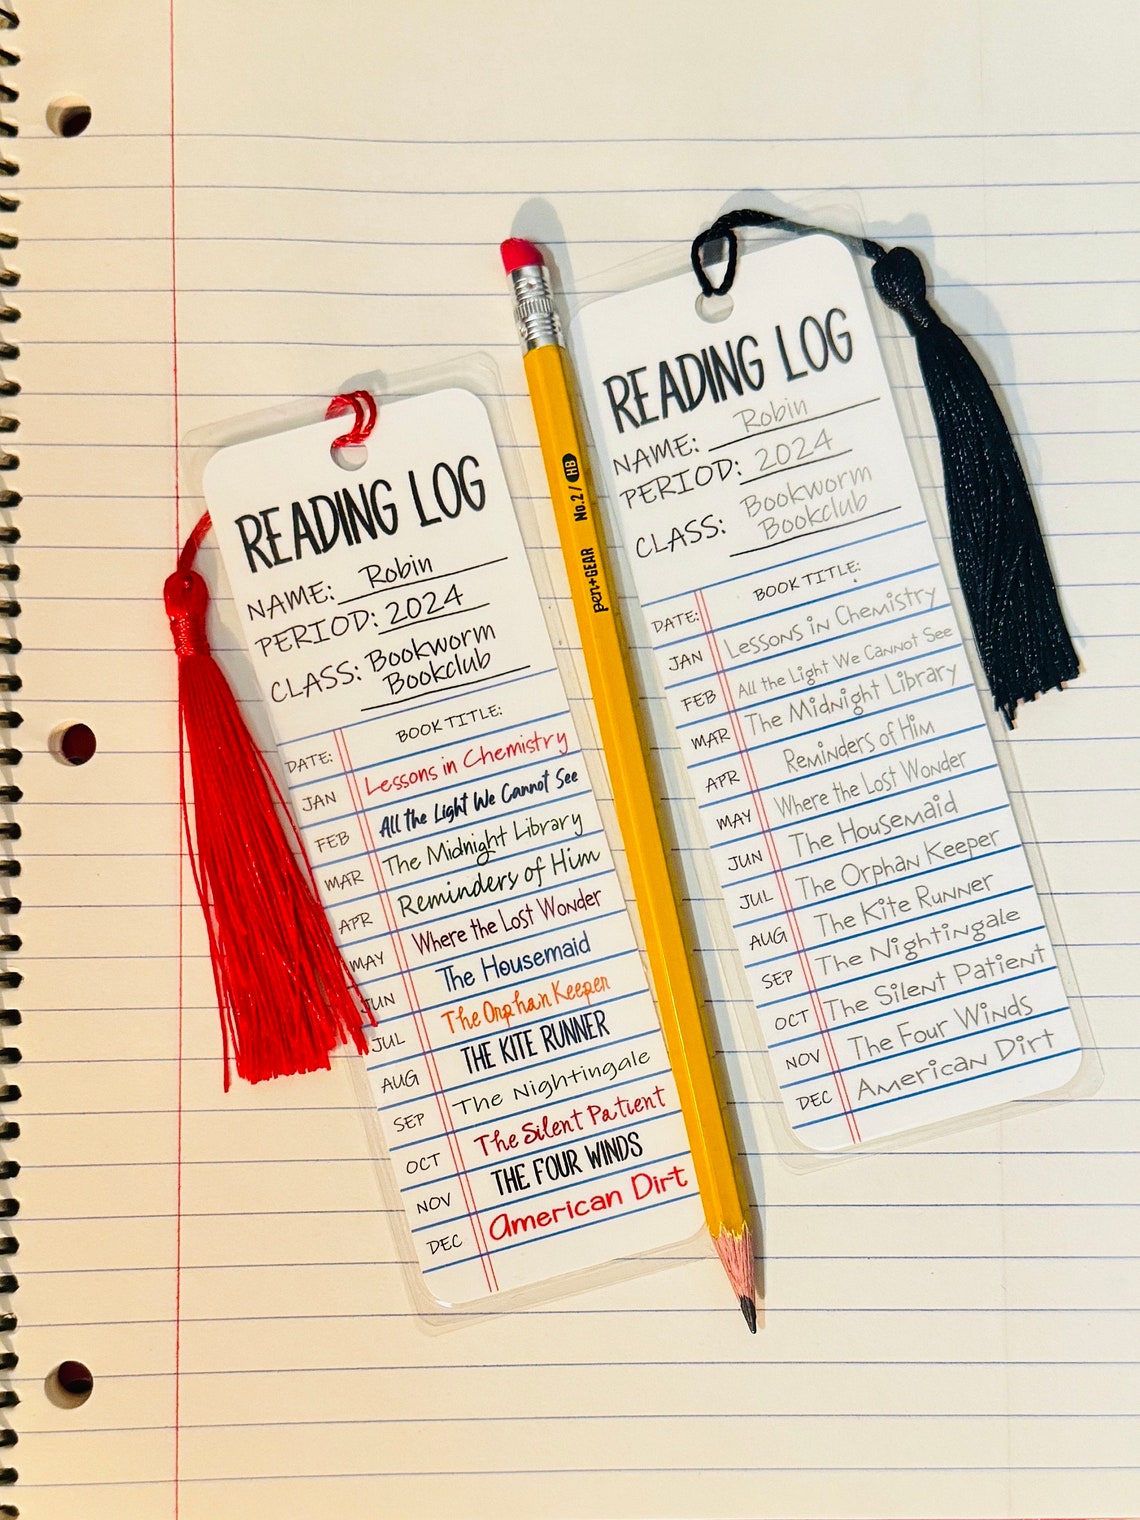 READING LOG
NAME: Robin
PERIOD: 2024
CLASS: Bookworm
Bookclub
DATE: BOOK TITLE:
JAN Lessons in Chemistry
FEB All the Light We Cannot See
MAR The Midnight Library
APR Reminders of Him
MAY Where the Lost Wonder
JUN The Housemaid
JUL The Orphan Keeper
AUG THE KITE RUNNER
SEP The Nightingale
OCT The Silent Patient
NOV THE FOUR WINDS
DEC American Dirt
pen+GEAR No.2 / HB
READING LOG
NAME: Robin
PERIOD: 2024
CLASS: Bookworm
Bookclub
DATE: BOOK TITLE:
JAN Lessons in Chemistry
FEB All the Light We Cannot See
MAR The Midnight Library
APR Reminders of Him
MAY Where the Lost Wonder
JUN The Housemaid
JUL The Orphan Keeper
AUG The Kite Runner
SEP The Nightingale
OCT The Silent Patient
NOV The Four Winds
DEC American Dirt